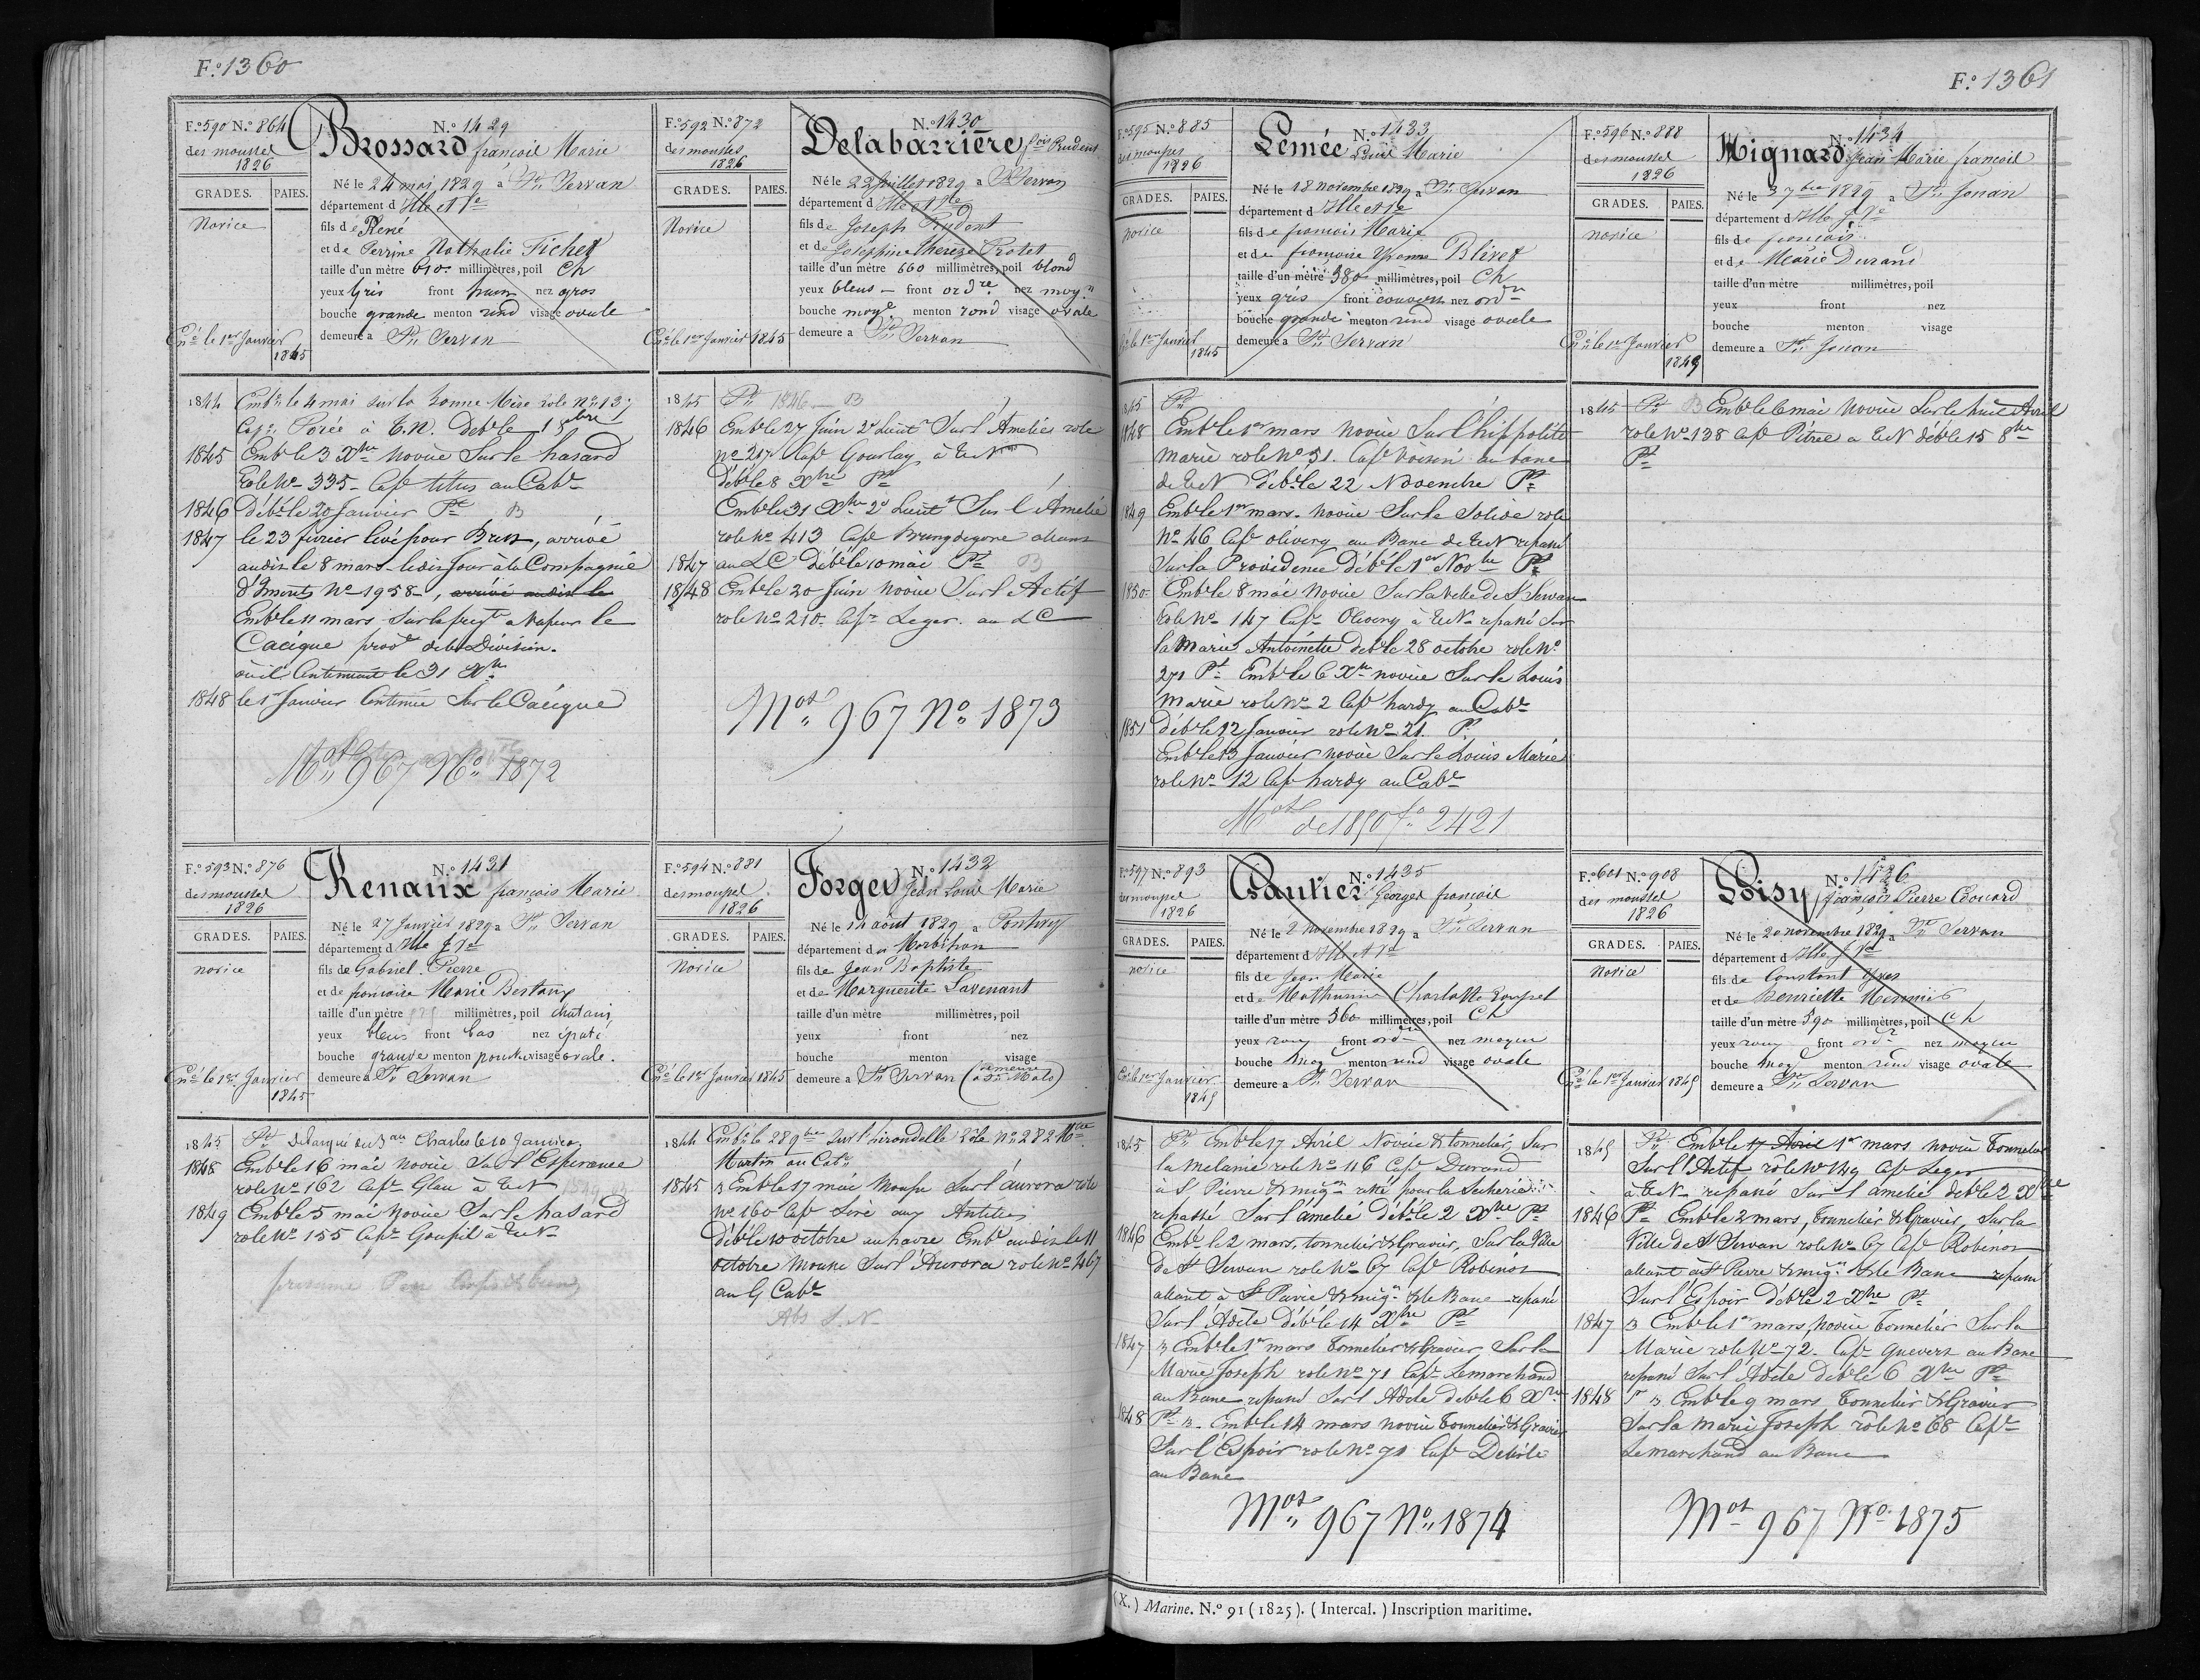 F.o 1360
F.o 590 N.o 864
des mousses
1826
GRADES. PAIES.
Novice
N.o 1429
Brossard françois Marie
Né le 24 mai 1829 a St Servan
département d Ille et Ve
fils de René
et de Perrine Nathalie Fichet
taille d'un mètre 610 millimètres, poil Ch
yeux Gris front haut nez gros
bouche grande menton rond visage ovale
demeure a St Servan
le 1er Janvier
1845
1844 Embé le 4 mai sur la bonne Mère role No 13
Cape Porée à T.N. Debé le 15 bre
1845 Embé le 3 Xbre novice Sur le hasard
Role No 335 Cape titus au Cabe
1846 Débé le 20 Janvier Pt B
1847 le 23 février levé pour Brest, arrivé
audit le 8 mars le dit Jour à la Compagnie
d'Imonts No 1958, arrivé audit le
Embé le 11 mars Sur la fregte a Vapeur le
Cacique prove de la Division.
où il Continuait le 31 Xbre
1848 le 1er Janvier Continue Sur le Cacique
Mot 967 No 1872
F.o 592 N.o 872
des mousses
1826
GRADES. PAIES.
Novice
N.o 1430
Delabarrière fois Prudent
Né le 22 Juillet 1829 a St Servan
département d Ille et Ve
fils de Joseph Prudent
et de Josephine Thereze Protet
taille d'un mètre 660 millimètres, poil blond
yeux bleus front ordre nez moyn
bouche moye menton rond visage ovale
demeure a St Servan
le 1er Janvier 1845
1845 Pt 1846 B
1846 Embé le 27 Juin 2e Lieut Sur l'Amélie role
No 217 Cape Gourlay à TN
débé le 8 Xbre Pt
Embé le 31 Xbre 2e Lieut Sur l'Amelie
role No 413 Cape allant
1847 au LC débé le 10 mai Pt B
1848 Embé le 20 Juin novice Sur l'Actif
role No 210 Cape Leger au LC
Mot 967 No 1873
F.o 593 N.o 876
des mousses
1826
GRADES. PAIES.
novice
N.o 1431
Renaux françois Marie
Né le 27 Janvier 1829 a St Servan
département d Ille & Ve
fils de Gabriel Pierre
et de françoise Marie Bertaux
taille d'un mètre millimètres, poil chatain
yeux bleus front bas nez épaté
bouche grande menton pointu visage ovale.
demeure a St Servan
le 1er Janvier
1845
1845 Pt debarqué du 3 au Charles le 10 Janvier
1848 Embé le 16 mai novice Sur l'Esperance
role No 162 Cape Glau à TN
1849 Embé le 5 mai novice Sur le hasard
role No 155 Cape Goupil à TN
présumé Péri Corps & biens
F.o 594 N.o 881
des mousses
1826
GRADES. PAIES.
Novice
N.o 1432
Forget Jean Louis Marie
Né le 14 août 1829 a Pontivy
département du Morbihan
fils de Jean Baptiste
et de Marguerite Lavenant
taille d'un mètre millimètres, poil
yeux front nez
bouche menton visage
demeure a St Servan (demeure a St Malo)
le 1er Janvier 1845
1844 Embé le 28 9bre sur l'hirondelle Role No 282 Mce
Martin au Cabe
1845 B Embé le 17 mai Mousse Sur l'aurora role
No 160 Cape Livé aux Antilles
Débé le 10 octobre au havre Embé audit le 11
octobre Mousse Sur l'Aurora role No 467
au G Cabe
Abs S.N
F.o 1361
F.o 595 N.o 885
des mousses
1826
GRADES. PAIES.
novice
N.o 1433
Lemée Louis Marie
Né le 18 novembre 1829 a St Servan
département d Ille et Ve
fils de françois Marie
et de françoise Yvonne Blivet
taille d'un mètre 580 millimètres, poil Ch
yeux gris front couvert nez ordre
bouche grande menton rond visage ovale
demeure a St Servan
le 1er Janvier
1845
1845 Pt
1848 Embé le 1er mars novice Sur l'hippolite
Marie role No 51. Cape Voisin au banc
de TN débé le 22 Novembre Pt
1849 Embé le 1er mars novice Sur le Solide role
No 46 Cape olivery au Banc de TN repassé
Sur la Providence Débé le 1er Novbre Pt
1850 Embé le 8 mai novice Sur la Ville de St Servan
Role No 147 Cape Olivery à TN repassé Sur
la Marie Antoinette debé le 28 octobre role No
271 Pt Embé le 6 Xbre novice Sur le Louis
Marie role No 2 Cape hardy au Cabe
1851 débé le 12 Janvier role No 21. Pt
Embé le 13 Janvier novice Sur le Louis Marie
role No 12 Cape hardy au Cabe
Mot de 1850 fo 2421
F.o 596 N.o 888
des mousses
1826
GRADES. PAIES.
novice
N.o 1434
Mignard Jean Marie françois
Né le 3 7bre 1829 a St Jouan
département d Ille & Ve
fils de françois
et de Marie Durand
taille d'un mètre millimètres, poil
yeux front nez
bouche menton visage
demeure a St Jouan
le 1er Janvier
1849
1845 Pt B Embé le 6 mai novice Sur le huit Avril
role No 138 Cape Pitrel a TN débé le 15 8bre
Pt
F.o 597 N.o 893
des mousses
1826
GRADES. PAIES.
novice
N.o 1435
Gautier Georges françois
Né le 2 novembre 1829 a St Servan
département d Ille et Ve
fils de Jean Marie
et de Mathurine Charlotte
taille d'un mètre 560 millimètres, poil Ch
yeux roux front ordre nez moyen
bouche moye menton rond visage ovale
demeure a St Servan
le 1er Janvier
1845
1845 Pt Embé le 17 Avril Novice & tonnelier, Sur
la Melanie role No 116 Cape Durand
à St Pierre & miqon resté pour la Secherie
repassé Sur l'amelie débé le 2 Xbre Pt
1846 Embé le 2 mars, tonnelier & Gravier, Sur la Ville
de St Servan role No 67 Cape Robinot
allant à St Pierre & miqn & le Banc repassé
Sur l'Adèle Débé le 14 Xbre Pt
1847 B Embé le 1er mars Tonnelier & Gravier Sur la
Marie Joseph role No 71 Cape Lemarchand
au Banc repassé Sur l'Adèle debé le 6 Xbre
1848 Pt B Embé le 14 mars novice Tonnelier & Gravier
Sur l'Espoir role No 71 Cape
au Banc
Mot 967 No 1874
F.o 601 N.o 908
des mousses
1826
GRADES. PAIES.
Novice
N.o 1426
Loisy françois Pierre Edouard
Né le 20 novembre 1829 a St Servan
département d Ille & Ve
fils de Constant Yves
et de henriette
taille d'un mètre 590 millimètres, poil Ch
yeux roux front ordr nez moyen
bouche moye menton rond visage ovale
demeure a St Servan
le 1er Janvier 1845
1845 Pt Embé le 17 Avril 1er mars novice Tonnelier
Sur l'Actif role No 149 Cape Leger
à TN repassé Sur l'amelie debé le 2 Xbre
1846 Pt Embé le 2 mars, Tonnelier & Gravier, Sur la
Ville de St Servan role No 67 Cape Robinot
allant à St Pierre & miqn & le Banc repassé
Sur l'Espoir débé le 2 Xbre Pt
1847 B Embé le 1er mars, novice Tonnelier Sur la
Marie role No 72 Cape guevert au Banc
repassé Sur l'Adele debé le 6 Xbre Pt
1848 B Embé le 9 mars Tonnelier & Gravier
Sur la Marie Joseph role No 68 Cape
Lemarchand au Banc
Mot 967 No 1875
(X.) Marine. N.o 91 (1825). (Intercal.) Inscription maritime.